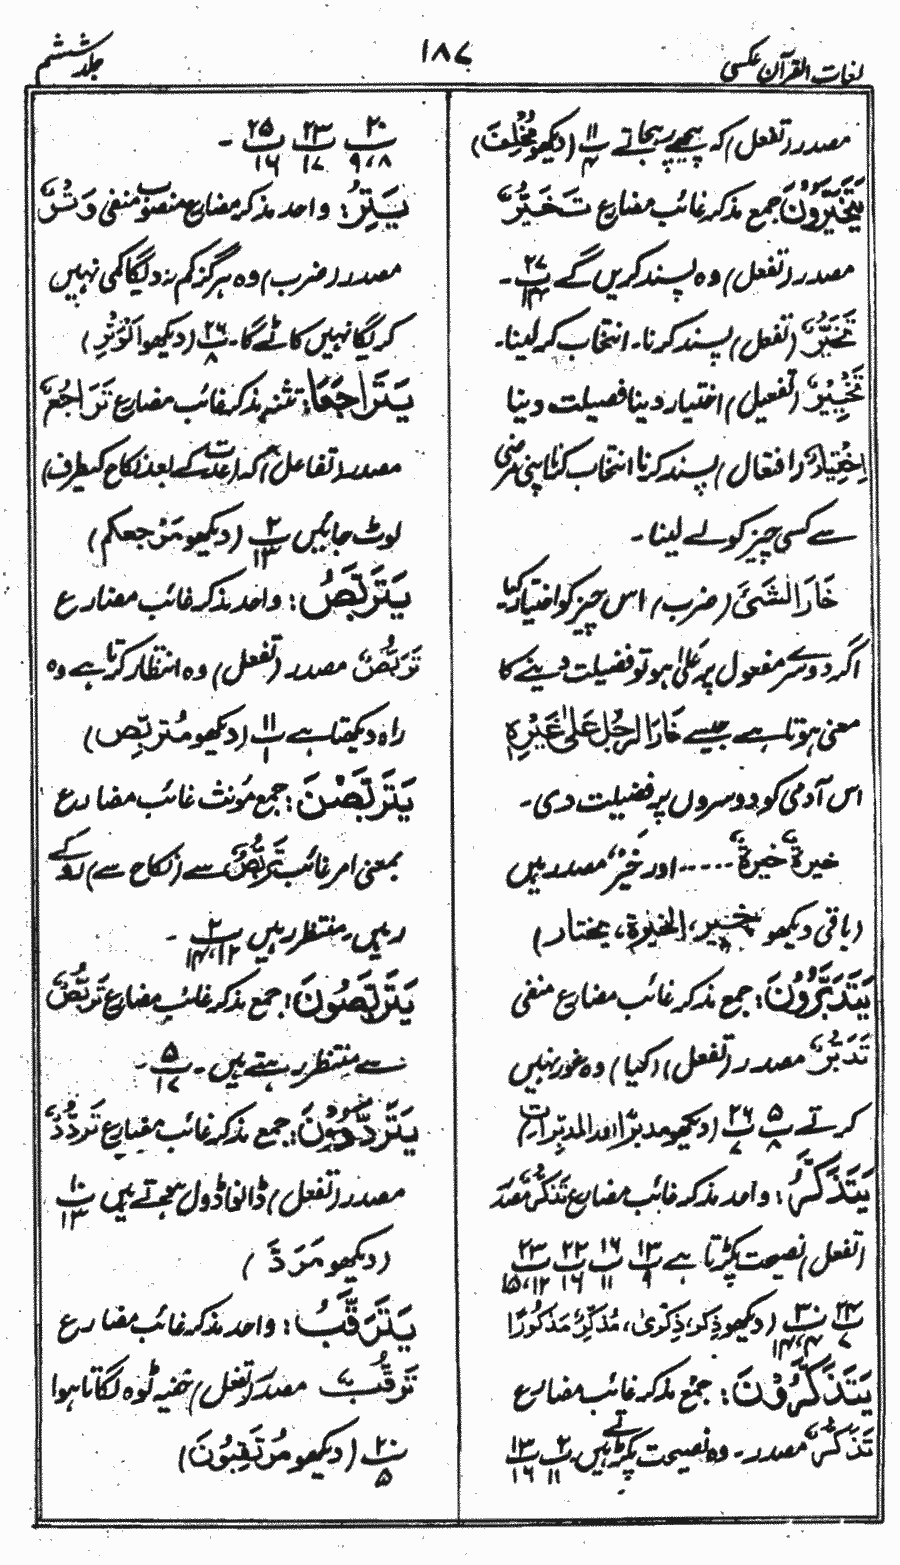 لغات القرآن عکسی
۱۸۷
جلد ششم
مصدر (تفعل) کہ پیچھے رہ جاتے ۱۱/۴ (دیکھو مُخْلِفَ)
یَتَخَیَّرُوْنَ جمع مذکر غائب مضارع تَخَیُّرٌ
مصدر (تفعل) وہ پسند کریں گے ۲۷/۱۴ ۔
تَخَیُّرٌ (تفعل) پسند کرنا۔ انتخاب کر لینا۔
تَخْیِیْرٌ (تفعیل) اختیار دینا فضیلت دینا
اِخْتِیَارٌ (افتعال) پسند کرنا انتخاب کرنا اپنی مرضی
سے کسی چیز کو لے لینا ۔
خَارَ الشَّیْءَ (ضرب) اس چیز کو اختیار کیا۔
اگر دوسرے مفعول پر عَلٰی ہو تو فضیلت دینے کا
معنی ہوتا ہے جیسے خَارَ الرَّجُلَ عَلٰی غَیْرِہٖ
اس آدمی کو دوسروں پر فضیلت دی ۔
خیرۃٌ خیرۃٌ ۔۔۔۔۔ اور خَیْرٌ مصدر ہیں
(باقی دیکھو یخیر، الخیرۃ، یختار)
یَتَدَبَّرُوْنَ: جمع مذکر غائب مضارع منفی
تَدَبُّرٌ مصدر (تفعل) (کیا) وہ غور نہیں
کرتے ۵/۸ ۲۶/۷ (دیکھو مدبرًا اور المدبرات)
یَتَذَکَّرُ: واحد مذکر غائب مضارع تَذَکُّرٌ مصدر
(تفعل) نصیحت پکڑتا ہے ۱۳/۹ ۱۶/۱۱ ۲۲/۱۶ ۲۳/۱۵،۱۲
۲۴/۷ ۳۰/۱۴،۴ (دیکھو ذِکر، ذِکْرٰی، مُذَکِّرٌ مَذْکُوْرًا)
یَتَذَکَّرُوْنَ: جمع مذکر غائب مضارع
تَذَکُّرٌ مصدر ۔ وہ نصیحت پکڑتے ہیں۔ ۲/۱۱ ۱۳/۱۶
۲۰/۹،۸ ۲۳/۱۷ ۲۵/۱۶ ۔
یَتِرُ: واحد مذکر مضارع منصوب منفی وَتْرٌ
مصدر (ضرب) وہ ہرگز کم نہ دیگا کمی نہیں
کریگا نہیں کاٹے گا۔ ۲۶/۸ (دیکھو اَلْوَتْرِ)
یَتَرَاجَعَا: تثنیہ مذکر غائب مضارع تَرَاجُعٌ
مصدر (تفاعل) کہ (عدت کے بعد نکاح کیطرف)
لوٹ جائیں ۲/۱۳ (دیکھو مَرْجعکم)
یَتَرَبَّصُ: واحد مذکر غائب مضارع
تَرَبُّصٌ مصدر (تفعل) وہ انتظار کرتا ہے وہ
راہ دیکھتا ہے ۱۱/۱ (دیکھو مُتَربِّص)
یَتَرَبَّصْنَ: جمع مؤنث غائب مضارع
بمعنی امر غائب تَرَبُّصٌ سے (نکاح سے) رُکے
رہیں۔ منتظر رہیں ۲/۱۴،۱۲ ۔
یَتَرَبَّصُوْنَ: جمع مذکر غائب مضارع تَرَبُّصٌ
سے منتظر رہتے ہیں ۔ ۵/۱۷ ۔
یَتَرَدَّدُوْنَ: جمع مذکر غائب مضارع تَرَدُّدٌ
مصدر (تفعل) ڈانوا ڈول ہو جاتے ہیں ۱۰/۱۳
(دیکھو مَرَدَّ)
یَتَرَقَّبُ: واحد مذکر غائب مضارع
تَرَقُّبٌ مصدر (تفعل) خفیہ ٹوہ لگاتا ہوا
۲۰/۵ (دیکھو مُرْتَقِبُوْنَ)